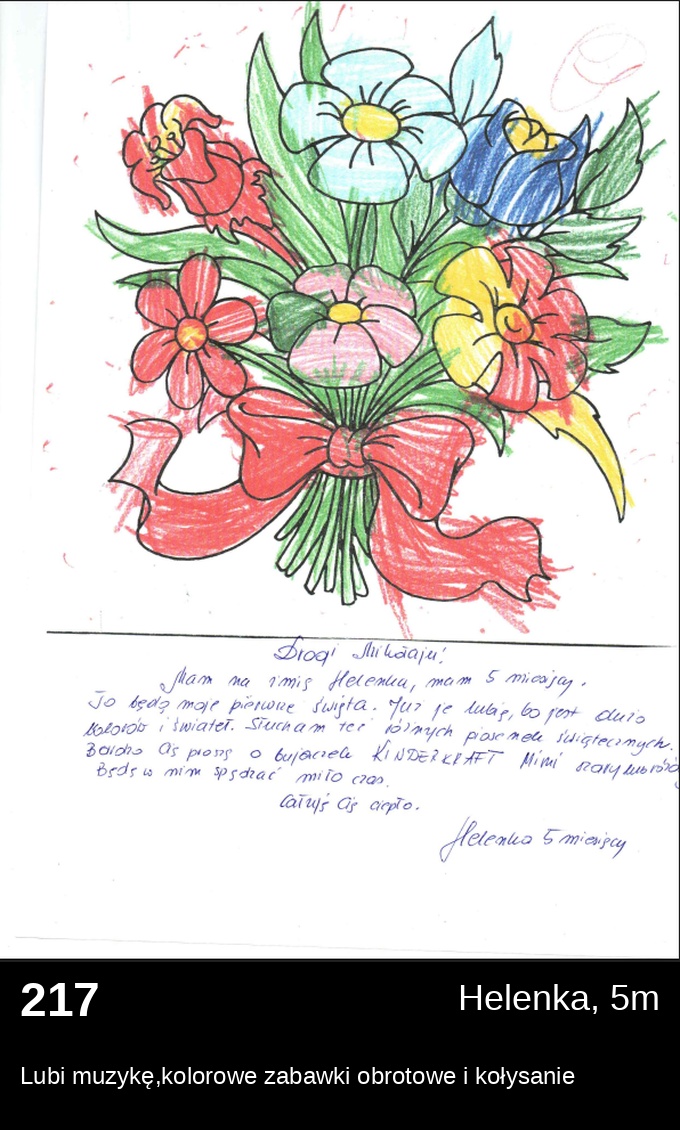 Drogi Mikołaju!
Mam na imię Helenka, mam 5 miesięcy.
To będą moje pierwsze święta. Już je lubię, bo jest dużo
kolorów i świateł. Słucham też różnych piosenek świątecznych.
Bardzo Cię proszę o bujaczek KINDERKRAFT Mimi szary lub róż
Będę w nim spędzać miło czas.
Całuję Cię ciepło.
Helenka 5 miesięcy
217
Helenka, 5m
Lubi muzykę,kolorowe zabawki obrotowe i kołysanie